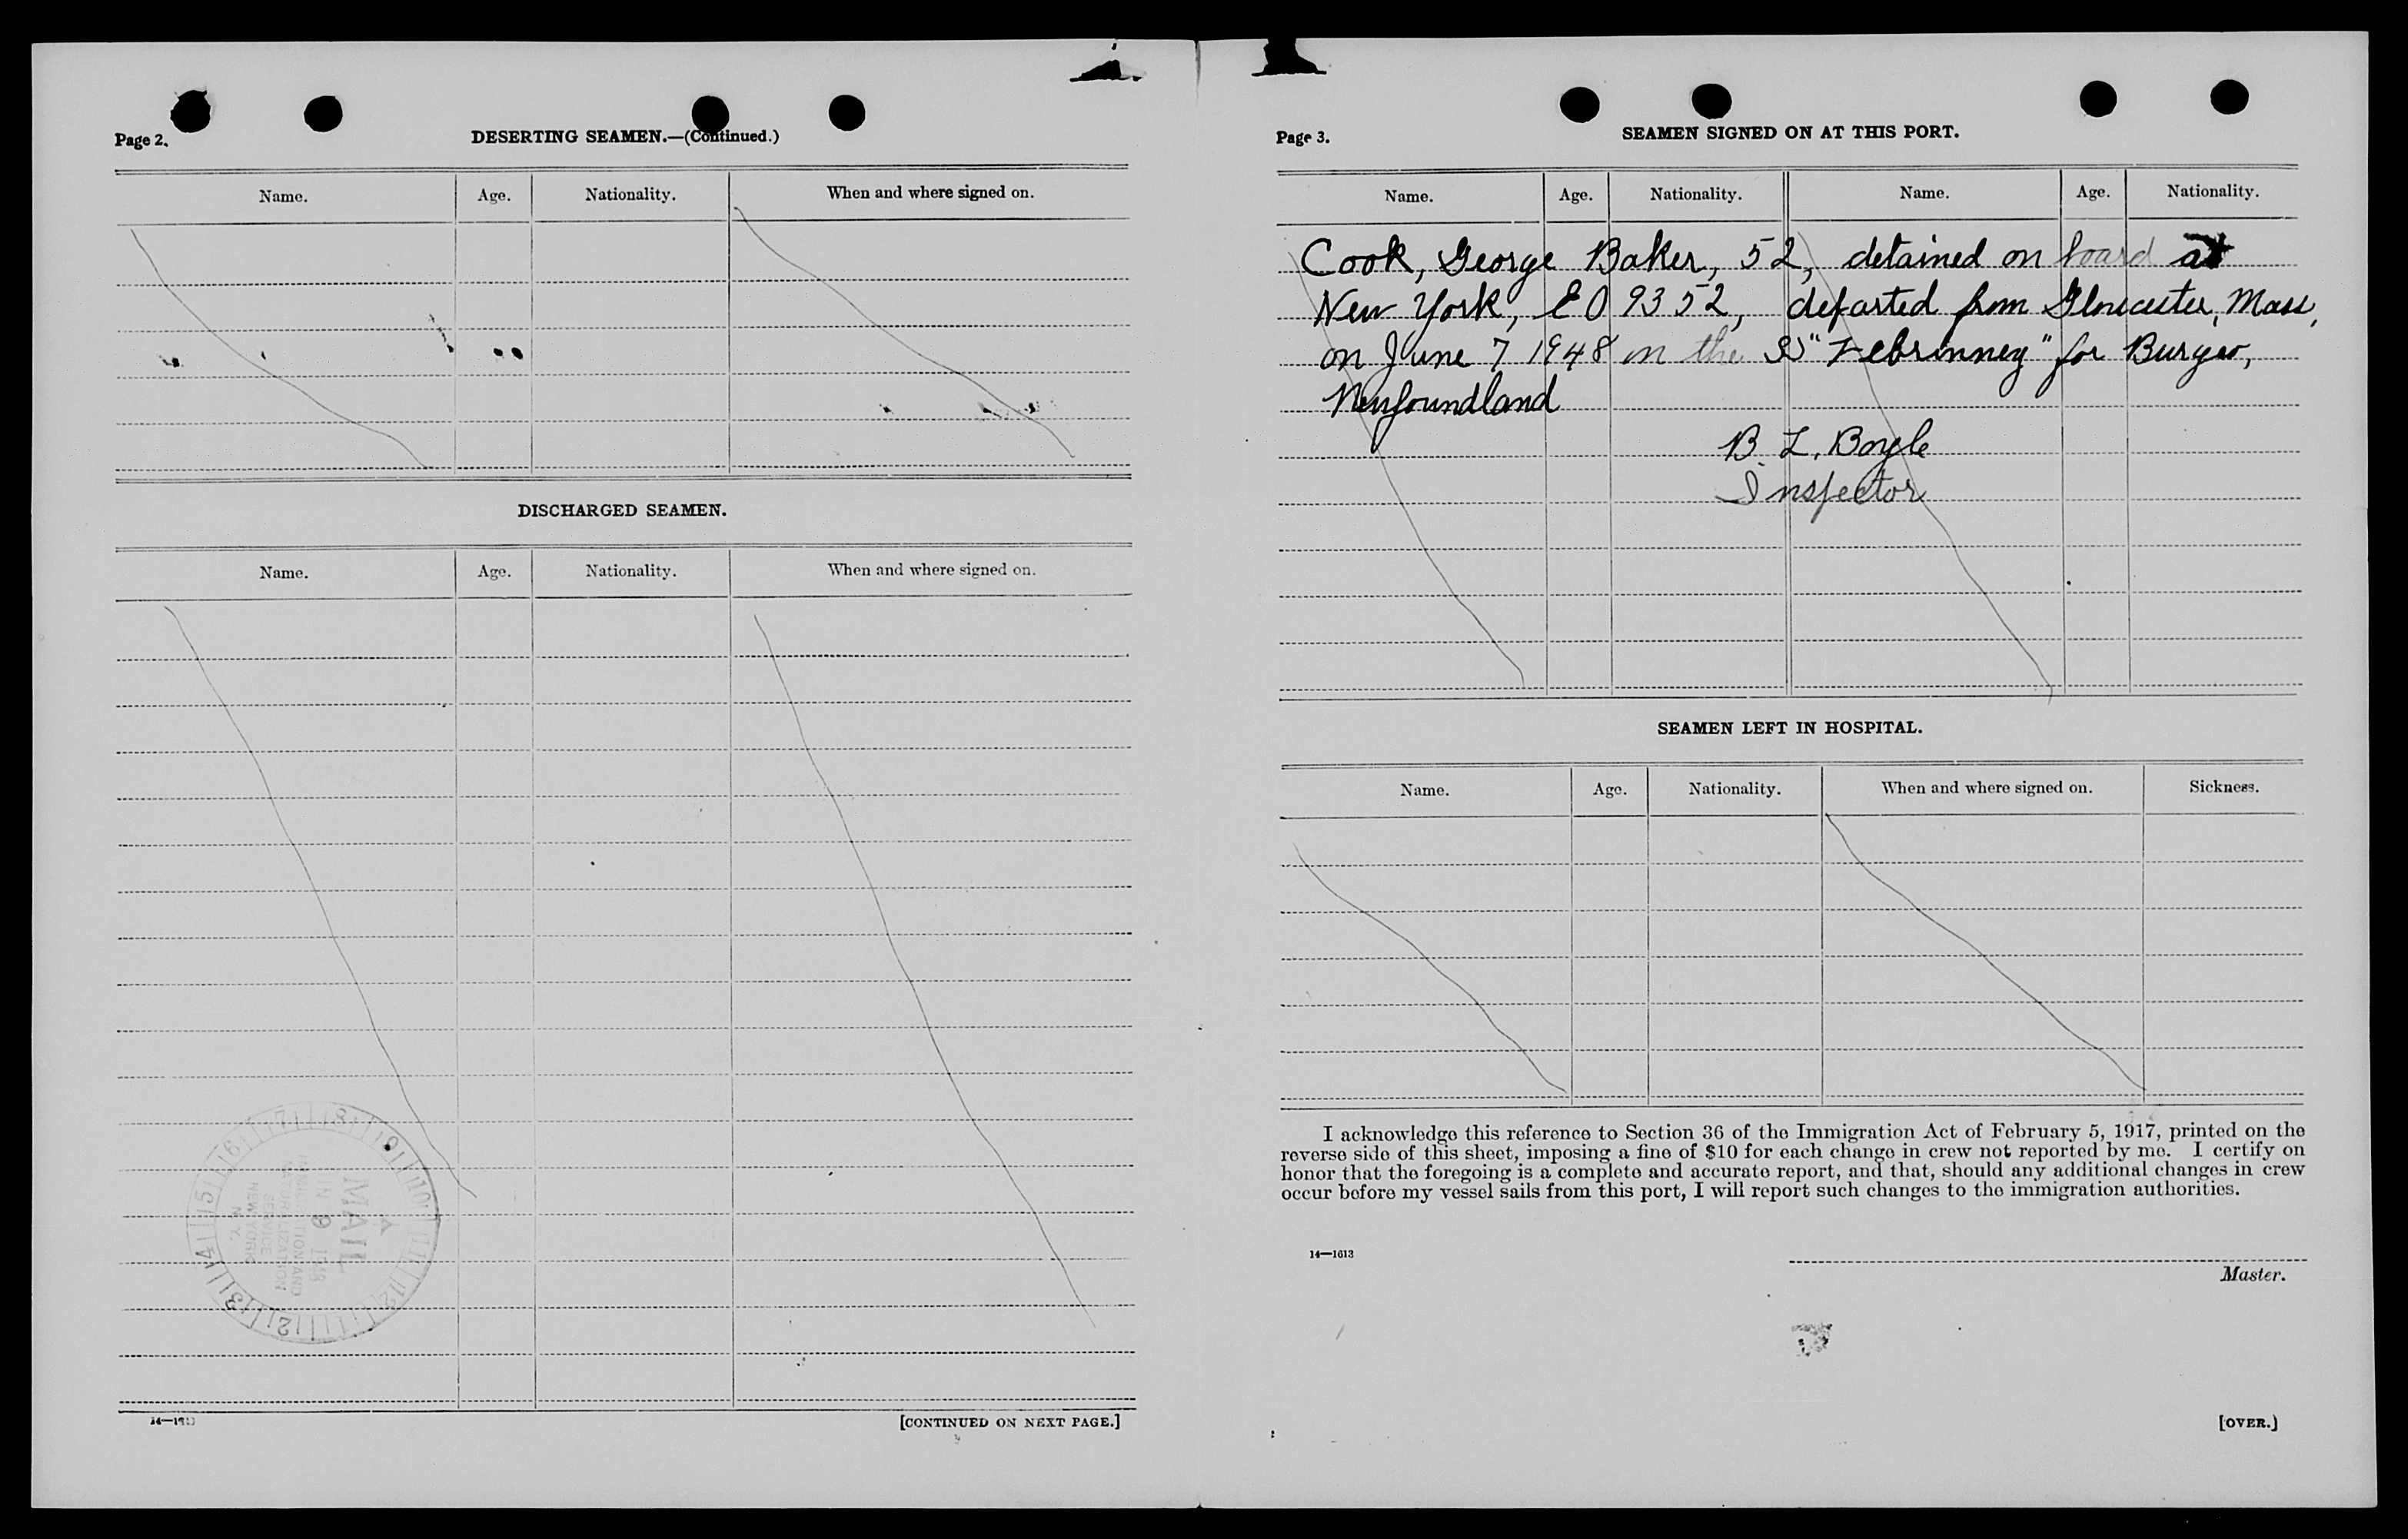 Page 2.
DESERTING SEAMEN.—(Continued.)
Name. Age. Nationality. When and where signed on.
DISCHARGED SEAMEN.
Name. Age. Nationality. When and where signed on.
MAIL
IMMIGRATION AND
NATURALIZATION
SERVICE
NEW YORK
N.Y.
[CONTINUED ON NEXT PAGE.]
Page 3.
SEAMEN SIGNED ON AT THIS PORT.
Name. Age. Nationality. Name. Age. Nationality.
Cook, George Baker, 52, detained on board at
New York, EO 9352, departed from Gloucester, Mass,
on June 7 1948 on the SS " " for Burgeo,
Newfoundland
B. L. Boyle
Inspector
SEAMEN LEFT IN HOSPITAL.
Name. Age. Nationality. When and where signed on. Sickness.
I acknowledge this reference to Section 36 of the Immigration Act of February 5, 1917, printed on the
reverse side of this sheet, imposing a fine of $10 for each change in crew not reported by me. I certify on
honor that the foregoing is a complete and accurate report, and that, should any additional changes in crew
occur before my vessel sails from this port, I will report such changes to the immigration authorities.
14—1613
Master.
[OVER.]